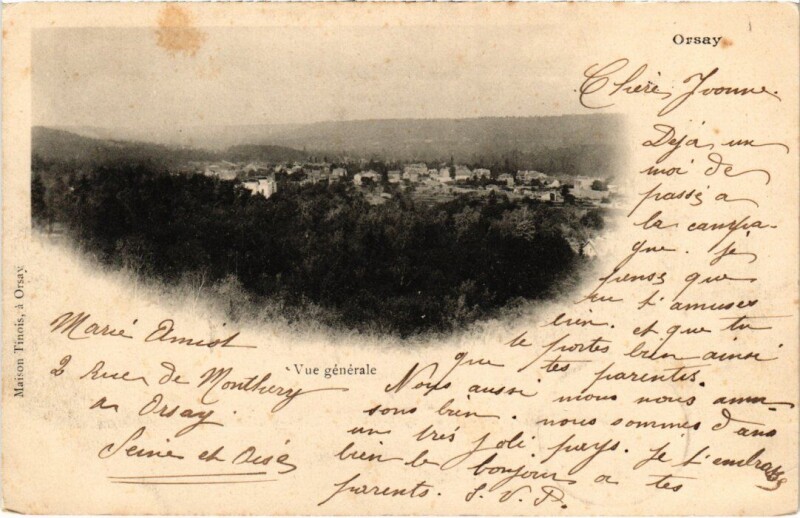 Orsay
Chère Yvonne.
Déjà un
moi de
passés a
la campa-
gne. Je
pense que
tu t'amuses
bien. et que tu
te portes bien ainsi
que tes parents.
Nous aussi nous nous amu
sons bien. nous sommes dans
un très joli pays. Je t'embrasse
bien le bonjour a tes
parents. S. V. P.
Vue générale
Marie Amiot
2 Rue de Monthery
a Orsay.
Seine et Oise
Maison Tinois, à Orsay